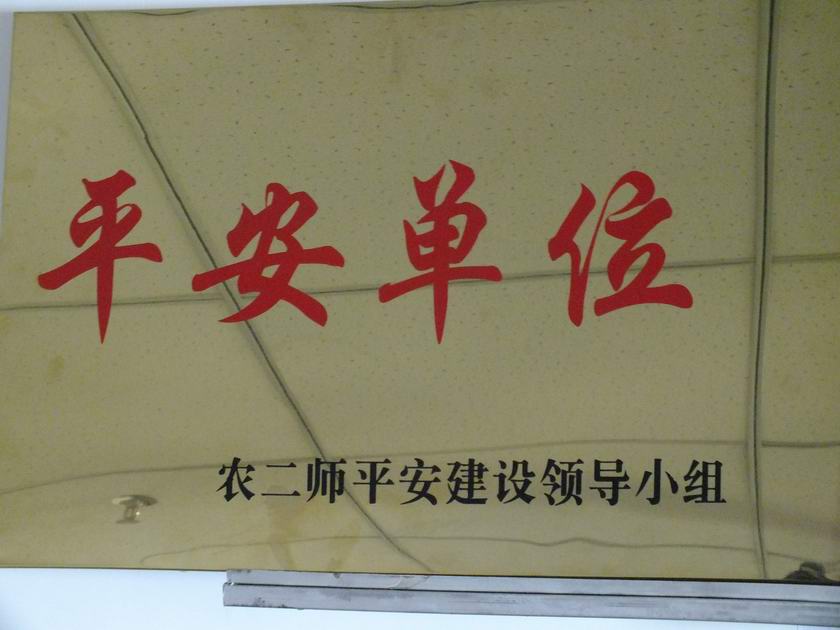 平安单位
农二师平安建设领导小组